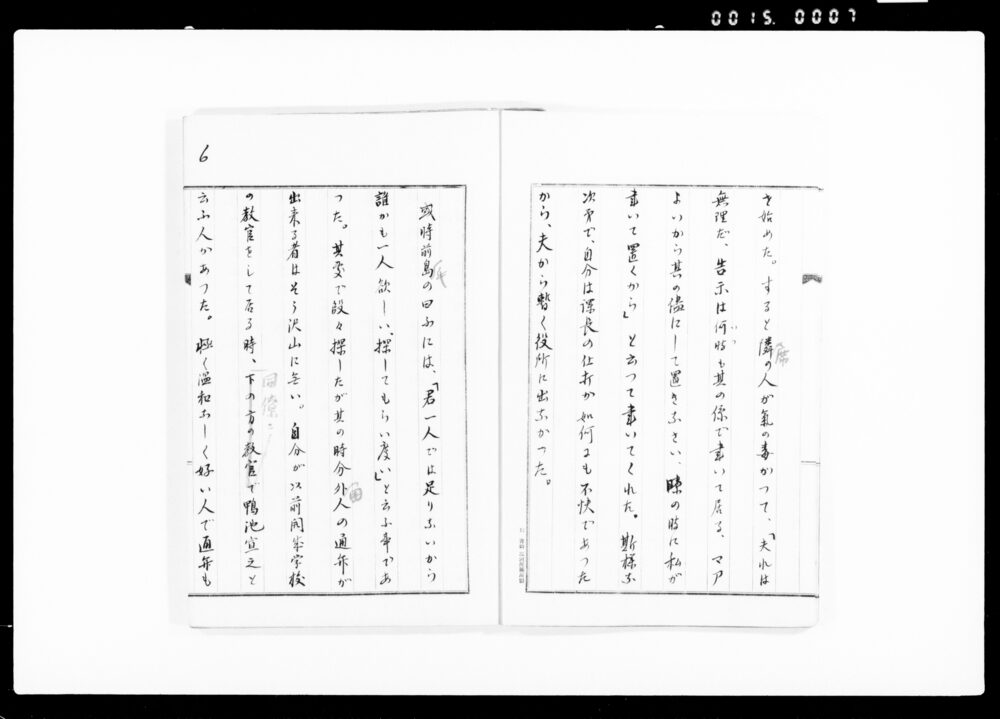 0015. 0007
を始めた。すると隣の人が氣の毒がつて、「夫れは
席
無理だ、告示は何時も其の係で書いて居る、マア
いつ
よいから其の儘にして置きなさい、暇の時に私が
書いて置くから」と云つて書いてくれた。斯様な
次第で、自分は課長の仕打が如何にも不快であつた
から、夫から暫く役所に出なかつた。
6
或時前島の曰ふには、「君一人では足りないから
氏
誰かも一人欲しい、探してもらい度い」と云ふ事であ
つた。其處で段々探したが其の時分外人の通弁が
國
出来る者はそう沢山に無い。自分が以前開成学校
の教官をして居る時、下の方の教官で鴨池宣之と
同僚に
云ふ人があつた。極く温和らしく好い人で通弁も